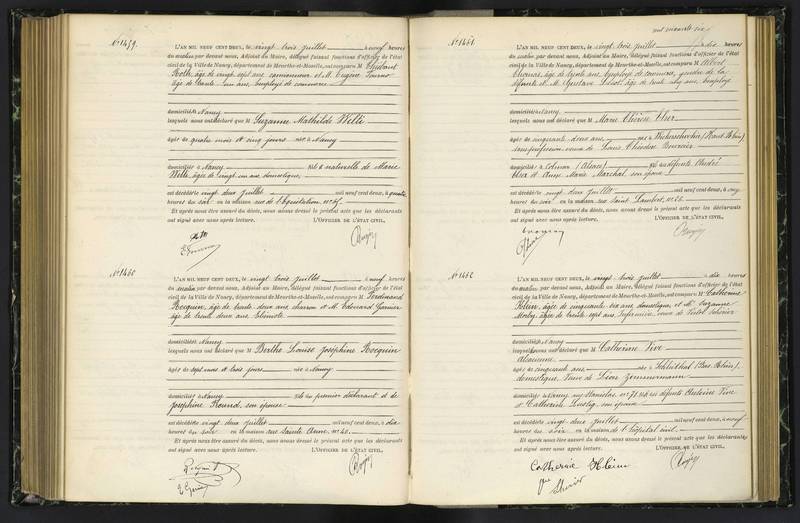 N° 1459.
L'AN MIL NEUF CENT DEUX, le vingt trois juillet à neuf heures
du matin par devant nous, Adjoint au Maire, délégué faisant fonctions d'officier de l'état
civil de la Ville de Nancy, département de Meurthe-et-Moselle, ont comparu M
âgé de vingt sept ans camionneur et M. Eugène
âgé de trente un ans, employé de commerce
domiciliés à Nancy
lesquels nous ont déclaré que M Suzanne Mathilde Welté
âgée de quatre mois et cinq jours née à Nancy
domiciliée à Nancy fille naturelle de Marie
Welté, âgée de vingt un ans, domestique,
est décédée vingt deux juillet mil neuf cent deux, à quatre
heures du soir en la maison rue de l'Equitation, n°
Et après nous être assuré du décès, nous avons dressé le présent acte que les déclarants
ont signé avec nous après lecture. L'OFFICIER DE L'ÉTAT CIVIL,
N° 1460
L'AN MIL NEUF CENT DEUX, le vingt trois juillet à neuf heures
du matin par devant nous, Adjoint au Maire, délégué faisant fonctions d'officier de l'état
civil de la Ville de Nancy, département de Meurthe-et-Moselle, ont comparu M Ferdinand
Rocquin, âgé de trente deux ans charron et M. Edouard Garnier
âgé de trente deux ans
domiciliés Nancy
lesquels nous ont déclaré que M Berthe Louise Joséphine Rocquin
âgée de sept mois et trois jours née à Nancy
domiciliée à Nancy fille du premier déclarant et de
Joséphine son épouse
est décédée vingt deux juillet mil neuf cent deux, à dix
heures du soir en la maison rue Sainte Anne, n° 40.
Et après nous être assuré du décès, nous avons dressé le présent acte que les déclarants
ont signé avec nous après lecture. L'OFFICIER DE L'ÉTAT CIVIL,
N° 1461
L'AN MIL NEUF CENT DEUX, le vingt trois juillet à dix heures
du matin par devant nous, Adjoint au Maire, délégué faisant fonctions d'officier de l'état
civil de la Ville de Nancy, département de Meurthe-et-Moselle, ont comparu M Albert
Thomas, âgé de trente ans, employé de commerce, gendre de la
défunte et M. Gustave âgé de trente ans, employé
domiciliés Nancy
lesquels nous ont déclaré que M Marie Thérèse
âgée de cinquante deux ans née à (Haut-Rhin)
sans profession, veuve de Louis Théodore
domiciliée à Colmar (Alsace) fille des défunts André
et Anne Marie Marchal, son épouse
est décédée vingt deux juillet mil neuf cent deux, à onze
heures du soir en la maison rue Saint Lambert, n°
Et après nous être assuré du décès, nous avons dressé le présent acte que les déclarants
ont signé avec nous après lecture. L'OFFICIER DE L'ÉTAT CIVIL,
N° 1462
L'AN MIL NEUF CENT DEUX, le vingt trois juillet à dix heures
du matin par devant nous, Adjoint au Maire, délégué faisant fonctions d'officier de l'état
civil de la Ville de Nancy, département de Meurthe-et-Moselle, ont comparu Me Catherine
âgée de cinquante six ans domestique, et Me Suzanne
âgée de trente sept ans, infirmière, veuve de
domiciliées Nancy
lesquelles nous ont déclaré que M Catherine Vive
Alsacienne
âgée de cinquante ans née à Schleithal (Bas-Rhin),
domestique, Veuve de Léon Zimmermann
domiciliée à Nancy, rue Stanislas, n° 71 fille des défunts Antoine Vive
et Catherine son épouse
est décédée vingt deux juillet mil neuf cent deux, à neuf
heures du soir en la maison de l'hôpital civil.
Et après nous être assuré du décès, nous avons dressé le présent acte que les déclarants
ont signé avec nous après lecture. L'OFFICIER DE L'ÉTAT CIVIL,
Catherine